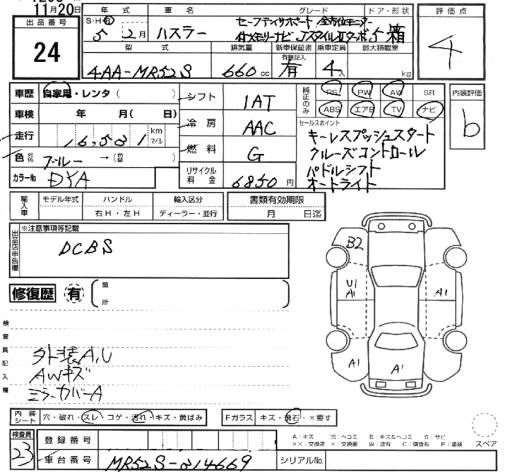 11月20日
出品番号
24
年式 車名 グレード ドア・形状 評価点
S・H・R
5年2月 ハスラー セーフティサポート 全方位モニター 5 箱
4
型式 排気量 新車保証書 乗車定員 最大積載量
有 記録簿
4AA-MR52S 660cc 有 4人 kg
車歴 自家用・レンタ( )
シフト IAT
純正のみ PS PW AW SR
ABS エアB TV ナビ
内装評価
b
車検 年 月( 日)
冷房 AAC
走行 16,581 km マイル
燃料 G
色 ブルー → (替 )
カラーNo DYA
リサイクル料金 6850円
セールスポイント
キーレスプッシュスタート
クルーズコントロール
パドルシフト
オートライト
輸入車 モデル年式 ハンドル 輸入区分 書類有効期限
右H・左H ディーラー・並行 月 日迄
※注意事項等記載
DCBS
修復歴 有 箇所
B2
U1
A1
A1
A1
A1
検査員記入欄
外装A,U
AWキズ
ミラーカバーA
内装シート 穴・破れ・スレ・コゲ・汚れ・キズ・黄ばみ
Fガラス キズ・飛石・×要す
検査員
23
登録番号
A:キズ U:ヘコミ B:キズ&ヘコミ S:サビ
スペア
車台番号 MR52S-214669 シリアルNo.